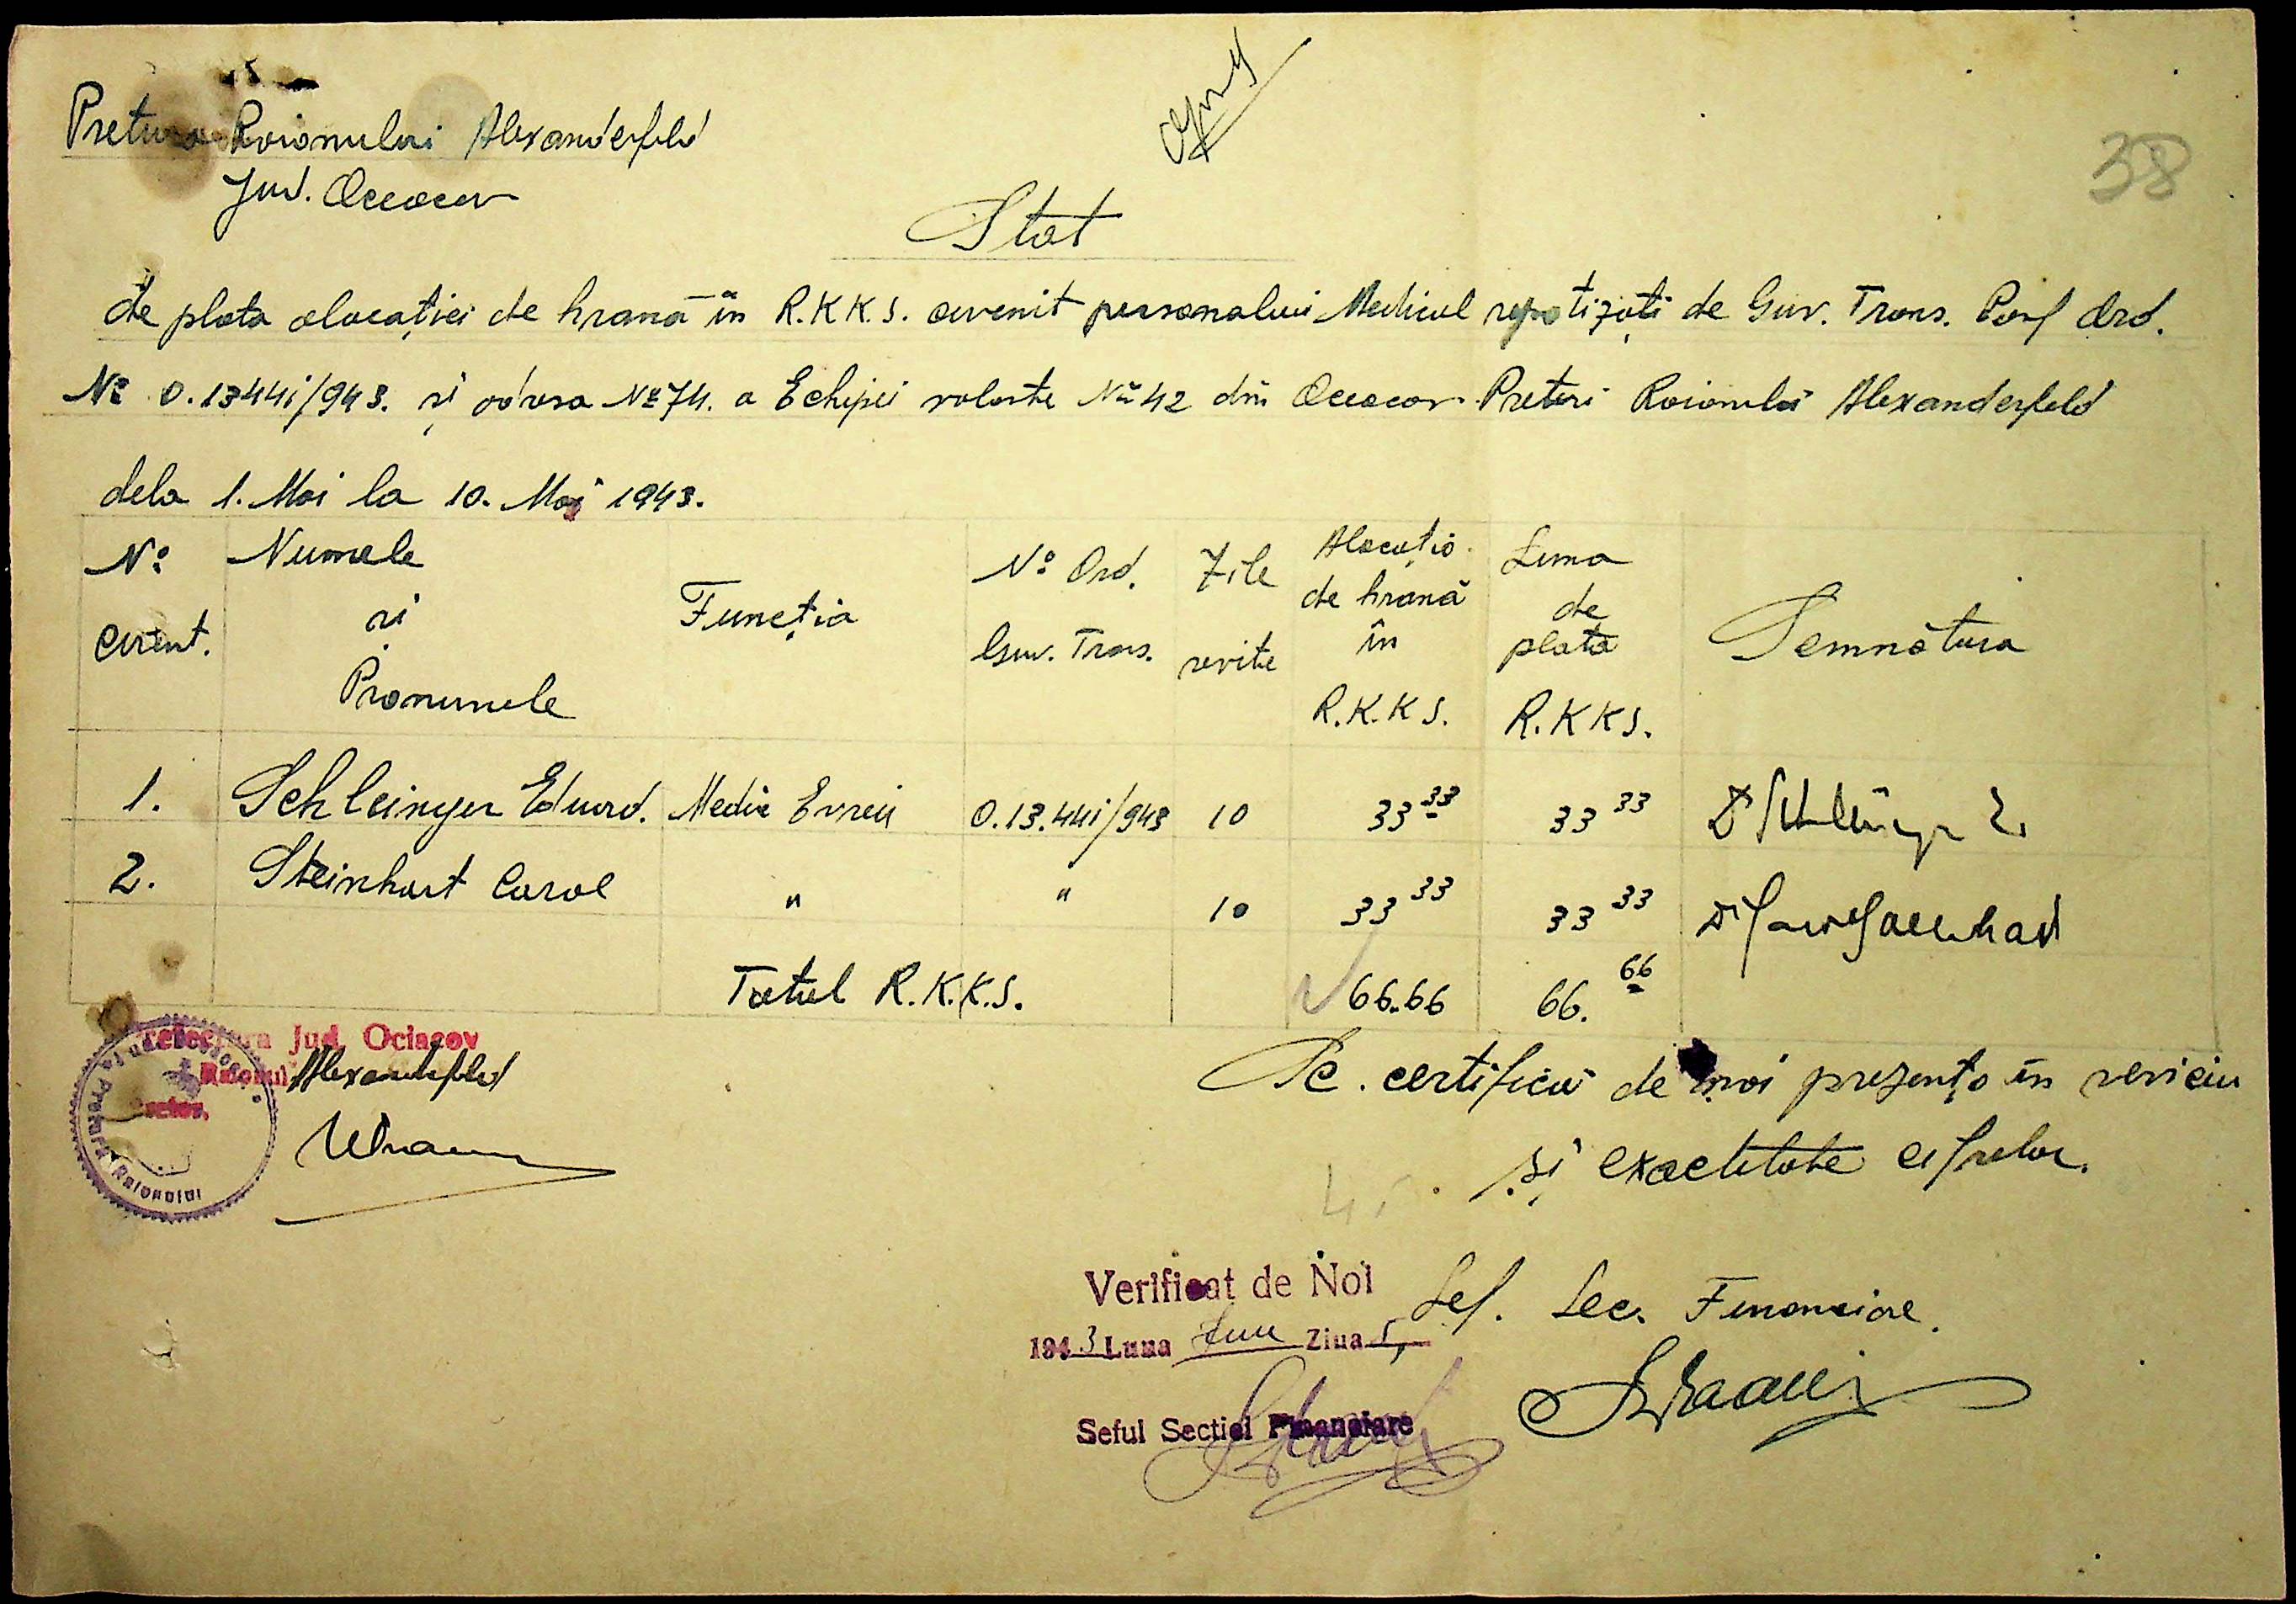 38
Pretura Raionului Alexanderfeld
Jud. Oceacov
Stat
de plata alocației de hrană în R.K.K.S. cuvenit personalului Medical repatizați de Guv. Trans. Conf Ord.
No 0.1344i/943. și adresa No 74. a Echipei volante No 42 din Oceacov. Preturi Raionului Alexanderfeld
dela 1. Mai la 10. Mai 1943.
No curent. Numele și Pronumele Funcția No Ord. Guv. Trans. Zile servite Alocația de hrană în R.K.K.S. Suma de plata R.K.K.S. Semnătura
1. Schleinger Eduard. Medic Evreu 0.13.44i/943 10 33 33 33 33 Dr Schleinger E.
2. Steinhart Carol " " 10 33 33 33 33 Dr
Totul R.K.K.S. 66.66 66. 66
Prefectura Jud. Ociacov
Raionul Alexanderfeld
Pretor,
Pretura Raionului
Se. certifică de noi prezența în serviciu
și exactitate cifrelor.
Verificat de Noi
1943 Luna Iuni Ziua 5,
Seful Sectiei Financiare
Sef. Sec. Financiare.